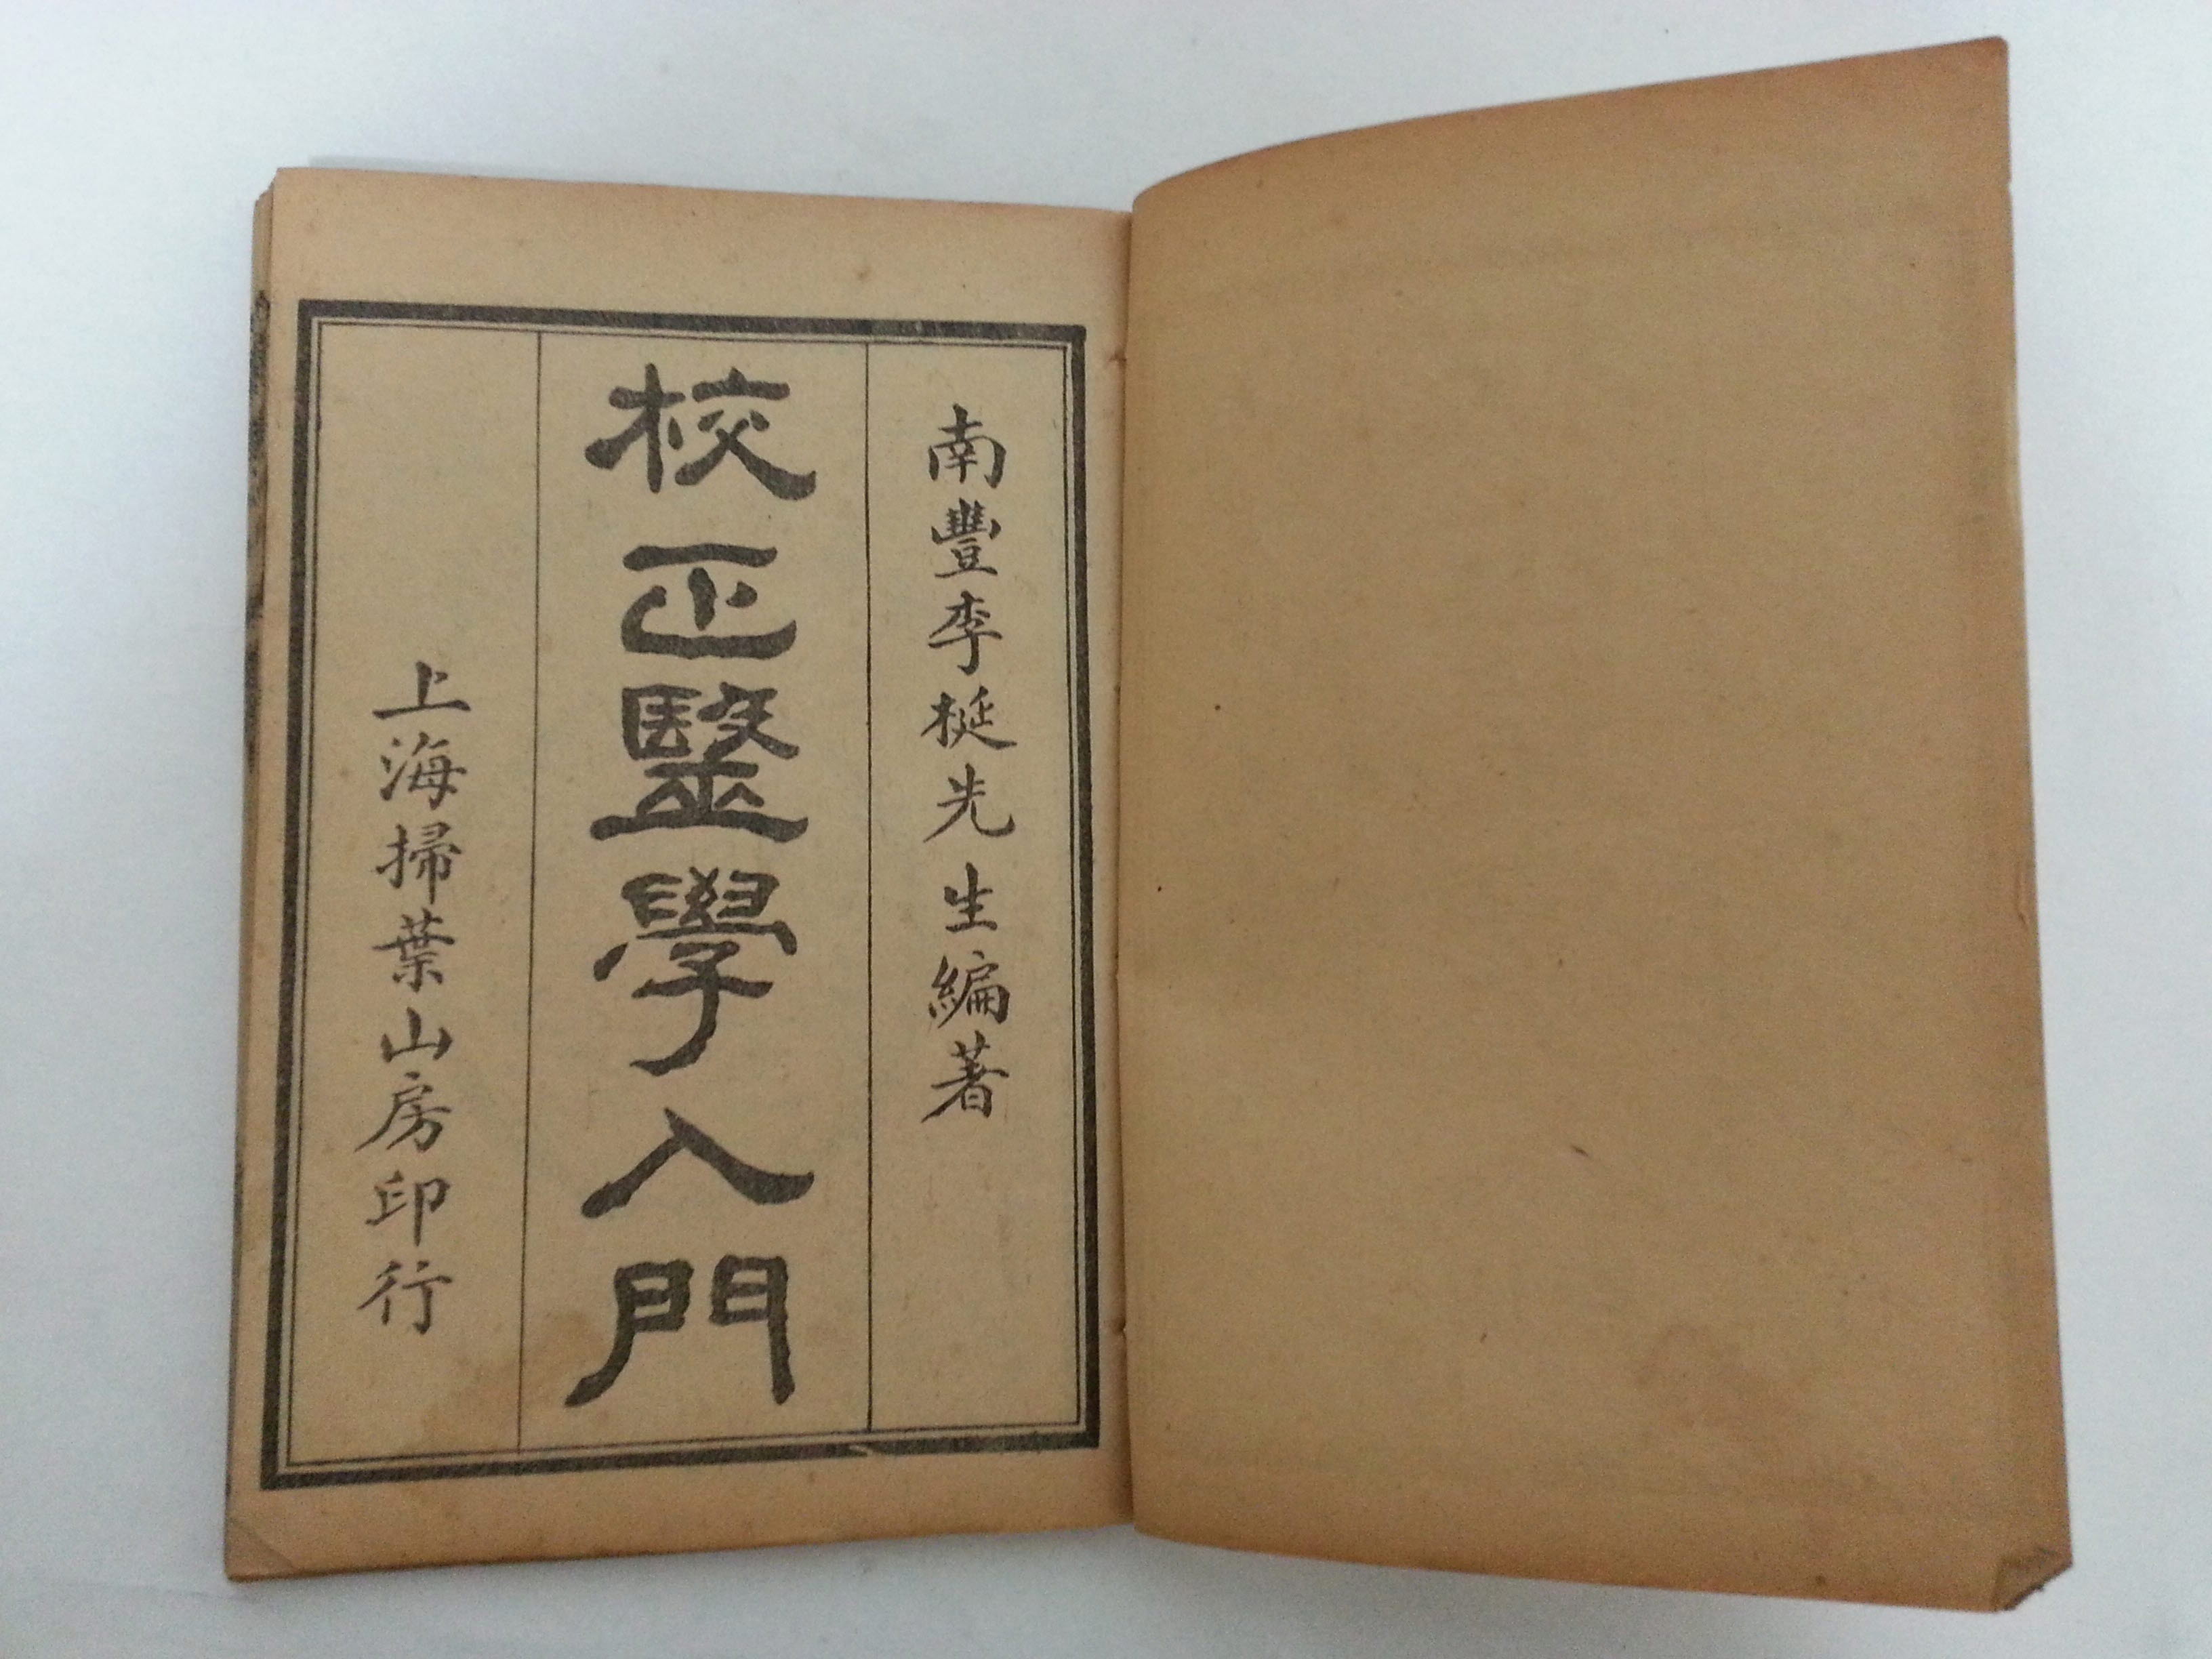 南豐李梴先生編著
校正毉學入門
上海掃葉山房印行